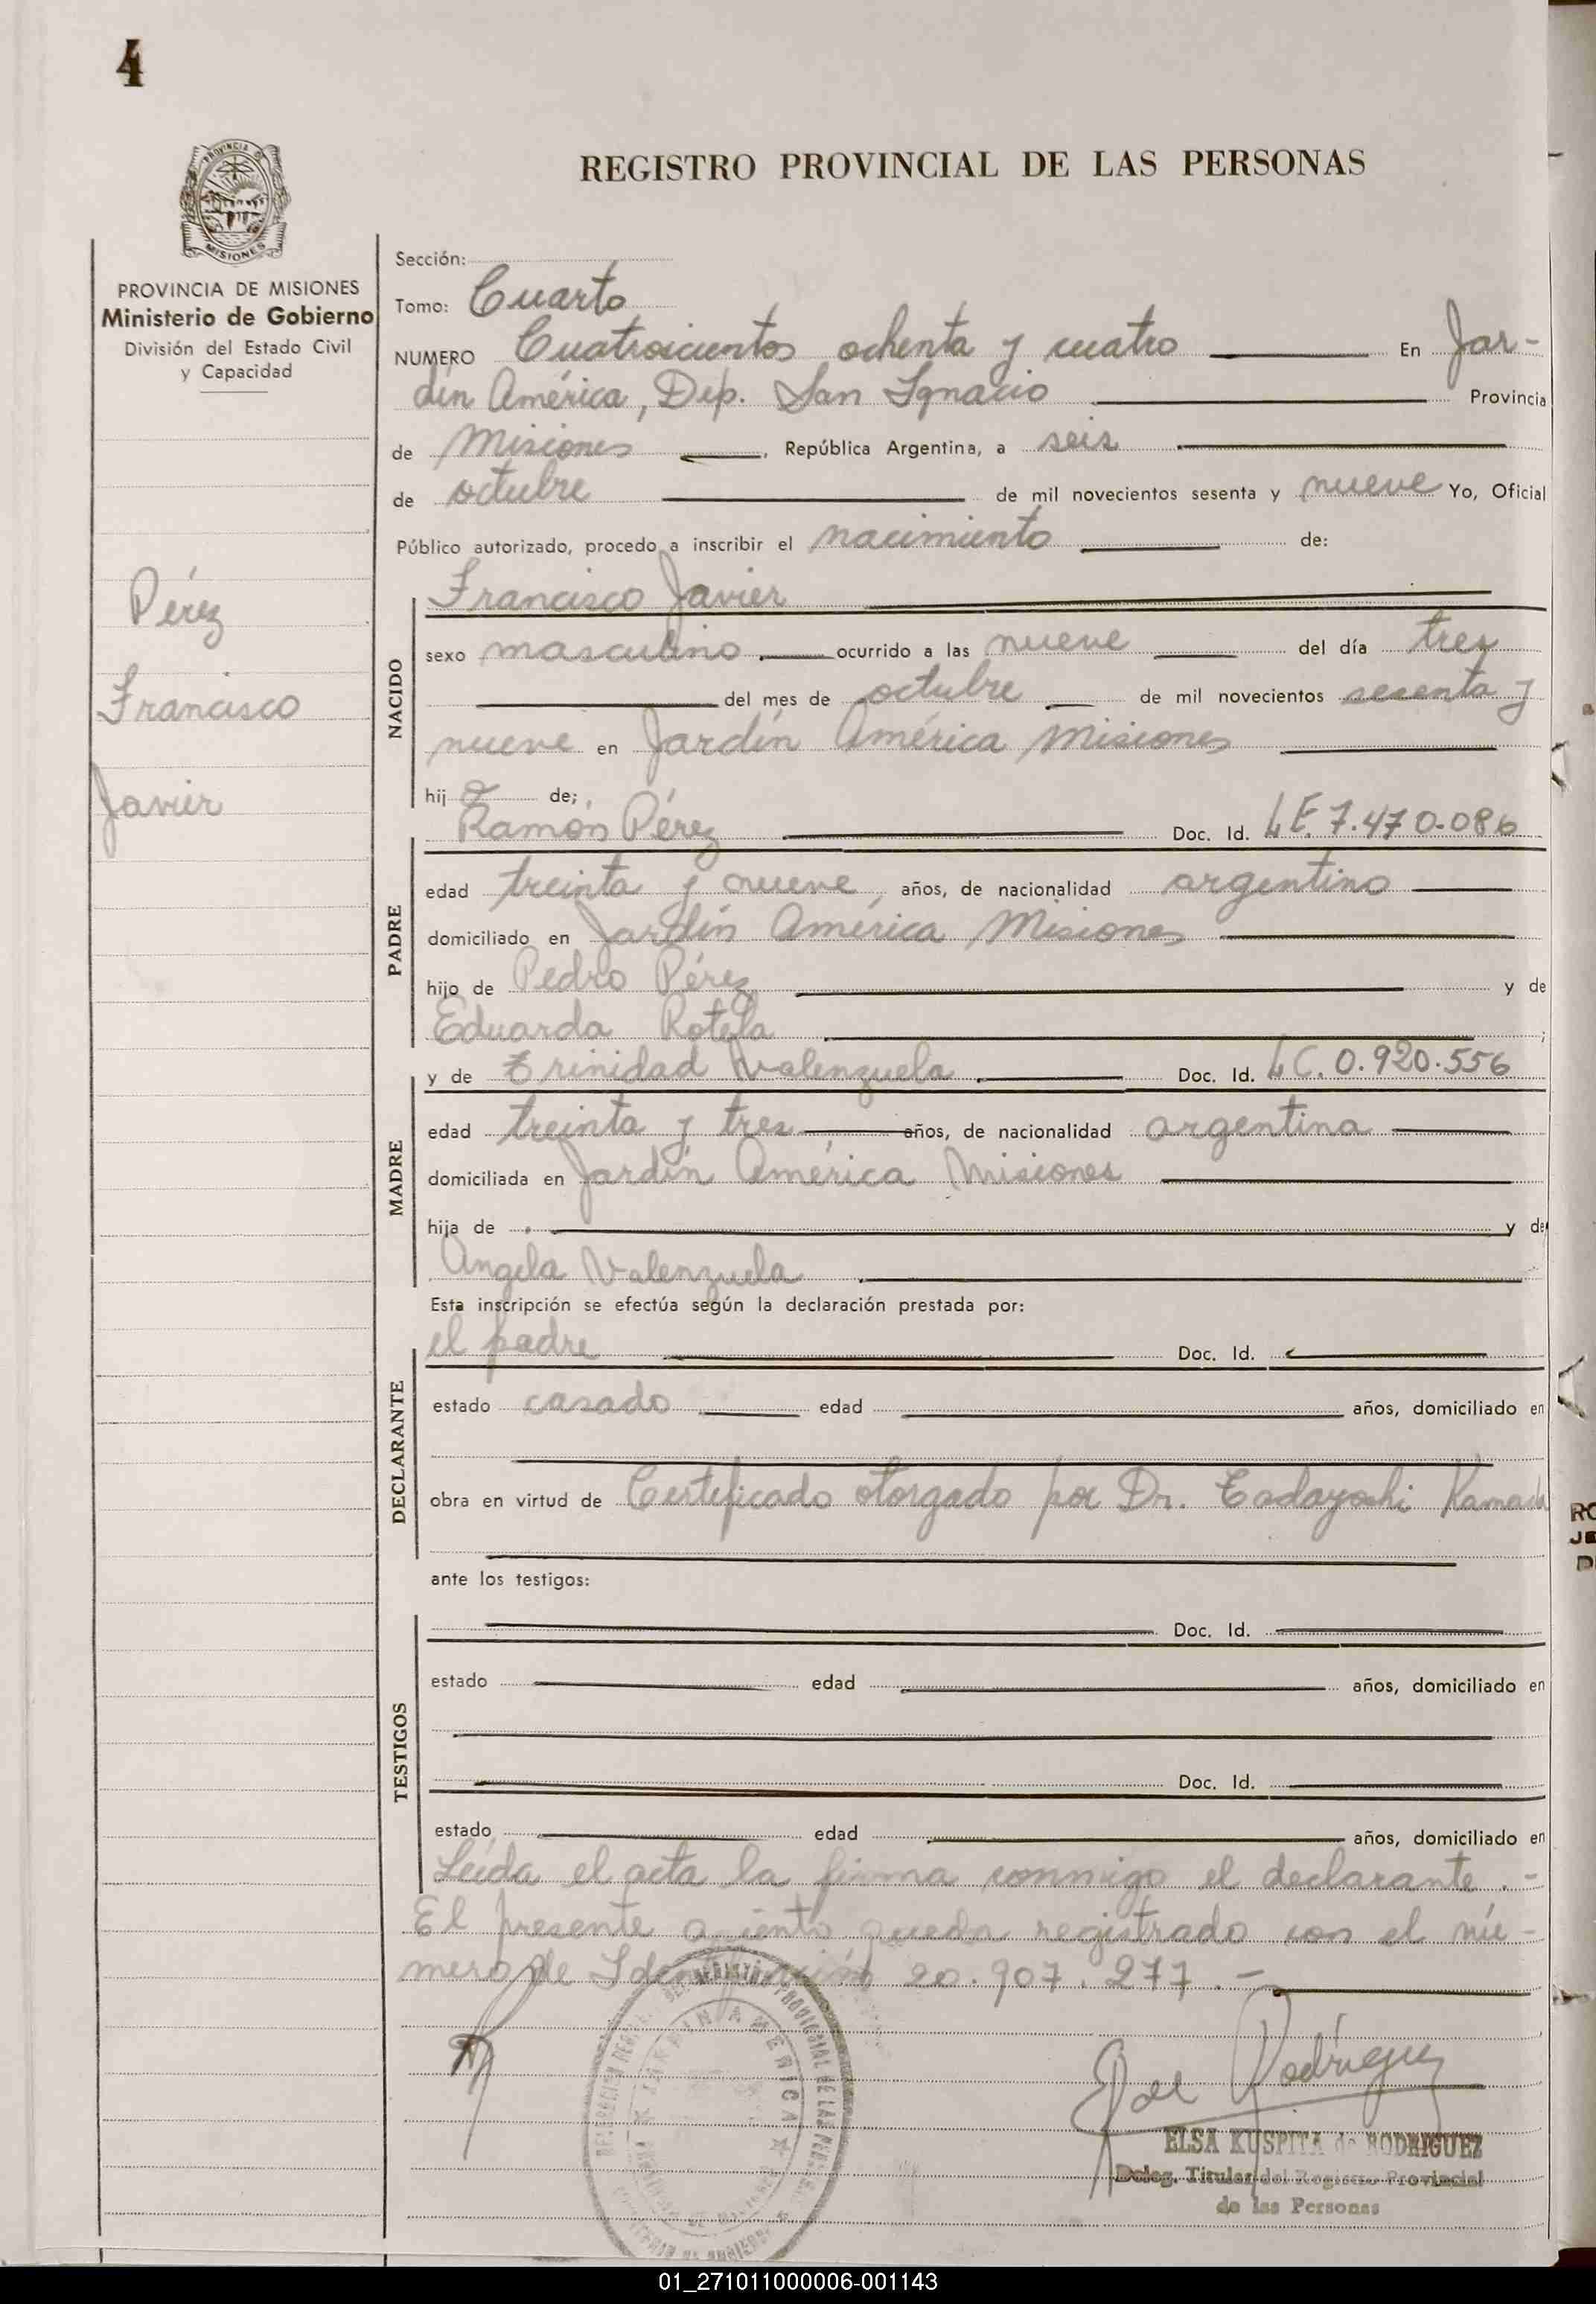 4
REGISTRO PROVINCIAL DE LAS PERSONAS
PROVINCIA DE MISIONES
Ministerio de Gobierno
División del Estado Civil
y Capacidad
Pérez
Francisco
Javier
Sección:
Tomo: Cuarto
NUMERO Cuatrocientos ochenta y cuatro En Jar-
dín América, Dep. San Ignacio Provincia
de Misiones, República Argentina, a seis
de octubre de mil novecientos sesenta y nueve Yo, Oficial
Público autorizado, procedo a inscribir el nacimiento de:
Francisco Javier
NACIDO
sexo masculino ocurrido a las nueve del día tres
del mes de octubre de mil novecientos sesenta y
nueve en Jardín América Misiones
hijo de;
Ramón Pérez Doc. Id. L.E. 7.470.086
PADRE
edad treinta y nueve años, de nacionalidad argentino
domiciliado en Jardín América Misiones
hijo de Pedro Pérez y de
Eduarda Rotela;
y de Trinidad Valenzuela Doc. Id. L.C. 0.920.556
MADRE
edad treinta y tres años, de nacionalidad argentina
domiciliada en Jardín América Misiones
hija de y de
Angela Valenzuela
Esta inscripción se efectúa según la declaración prestada por:
el padre Doc. Id.
DECLARANTE
estado casado edad años, domiciliado en
obra en virtud de Certificado otorgado por Dr. Tadayoshi
ante los testigos:
Doc. Id.
TESTIGOS
estado edad años, domiciliado en
Doc. Id.
estado edad años, domiciliado en
Leída el acta la firma conmigo el declarante.-
El presente asiento queda registrado con el nú-
mero de Identificación 20.907.277.-
Rodríguez
ELSA KUSPITA de RODRIGUEZ
Deleg. Titular del Registro Provincial
de las Personas
01_271011000006-001143